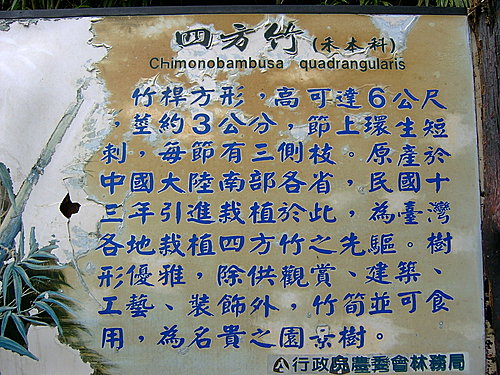 四方竹(禾本科)
Chimonobambusa quadrangularis
竹桿方形，高可達6公尺
，莖約3公分，節上環生短
刺，每節有三側枝。原產於
中國大陸南部各省，民國十
三年引進栽植於此，為臺灣
各地栽植四方竹之先驅。樹
形優雅，除供觀賞、建築、
工藝、裝飾外，竹筍並可食
用，為名貴之園景樹。
行政院農委會林務局